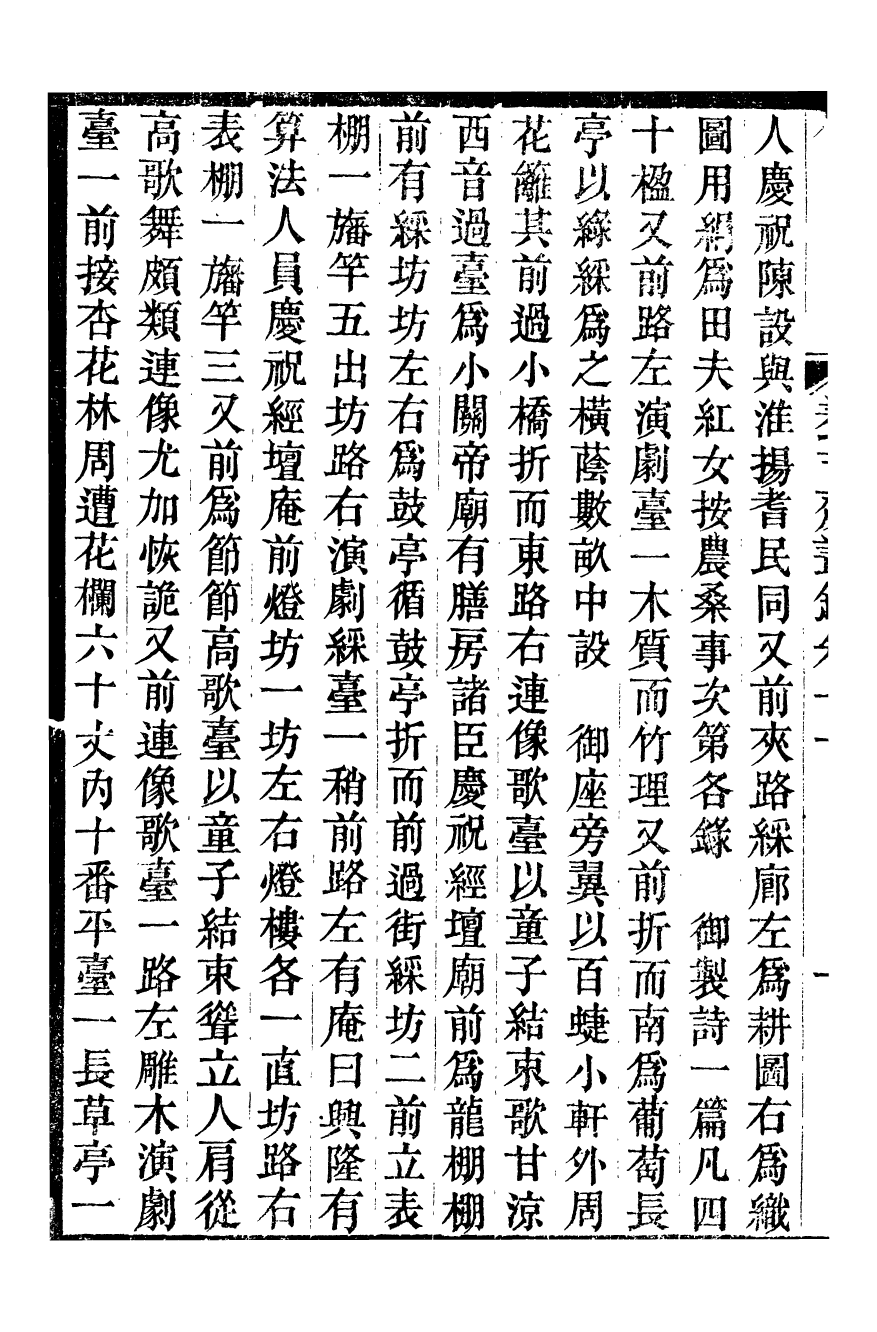 人慶祝陳設與淮揚耆民同又前夾路綵廊左爲耕圖右爲織
圖用絹爲田夫紅女按農桑事次第各錄　御製詩一篇凡四
十楹又前路左演劇臺一木質而竹理又前折而南爲葡萄長
亭以綠綵爲之橫蔭數畝中設　御座旁翼以百蜨小軒外周
花籬其前過小橋折而東路右連像歌臺以童子結束歌甘涼
西音過臺爲小關帝廟有膳房諸臣慶祝經壇廟前爲龍棚棚
前有綵坊坊左右爲鼓亭循鼓亭折而前過街綵坊二前立表
棚一旛竿五出坊路右演劇綵臺一稍前路左有庵曰興隆有
算法人員慶祝經壇庵前燈坊一坊左右燈樓各一直坊路右
表棚一旛竿三又前爲節節高歌臺以童子結束聳立人肩從
高歌舞頗類連像尤加恢詭又前連像歌臺一路左雕木演劇
臺一前接杏花林周遭花欄六十丈內十番平臺一長草亭一